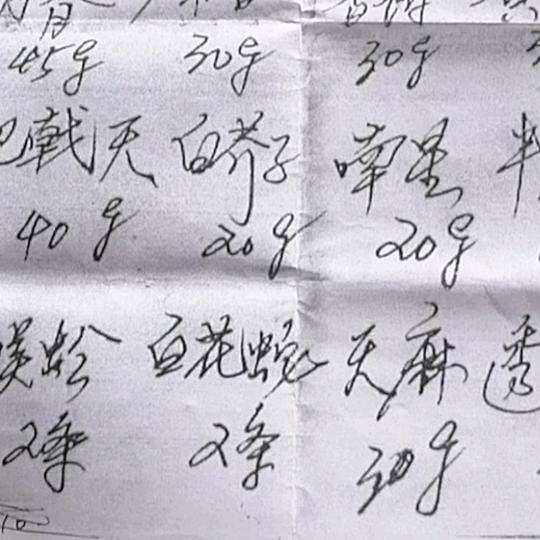 45g 30g 30g
巴戟天 白芥子 南星
40g 20g 20g
蜈蚣 白花蛇 天麻 透
2条 2条 30g